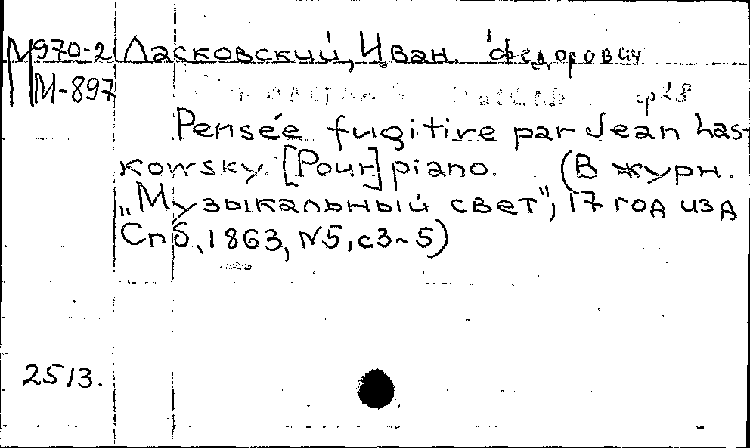 М970-2 Ласковский, Иван Федорович
М-897
Pensée fugitive par Jean Las-
kowsky. [Pour] piano. (В журн.
„Музыкальный свет", 17 год изд
Спб, 1863, N5, с3-5)
2513.